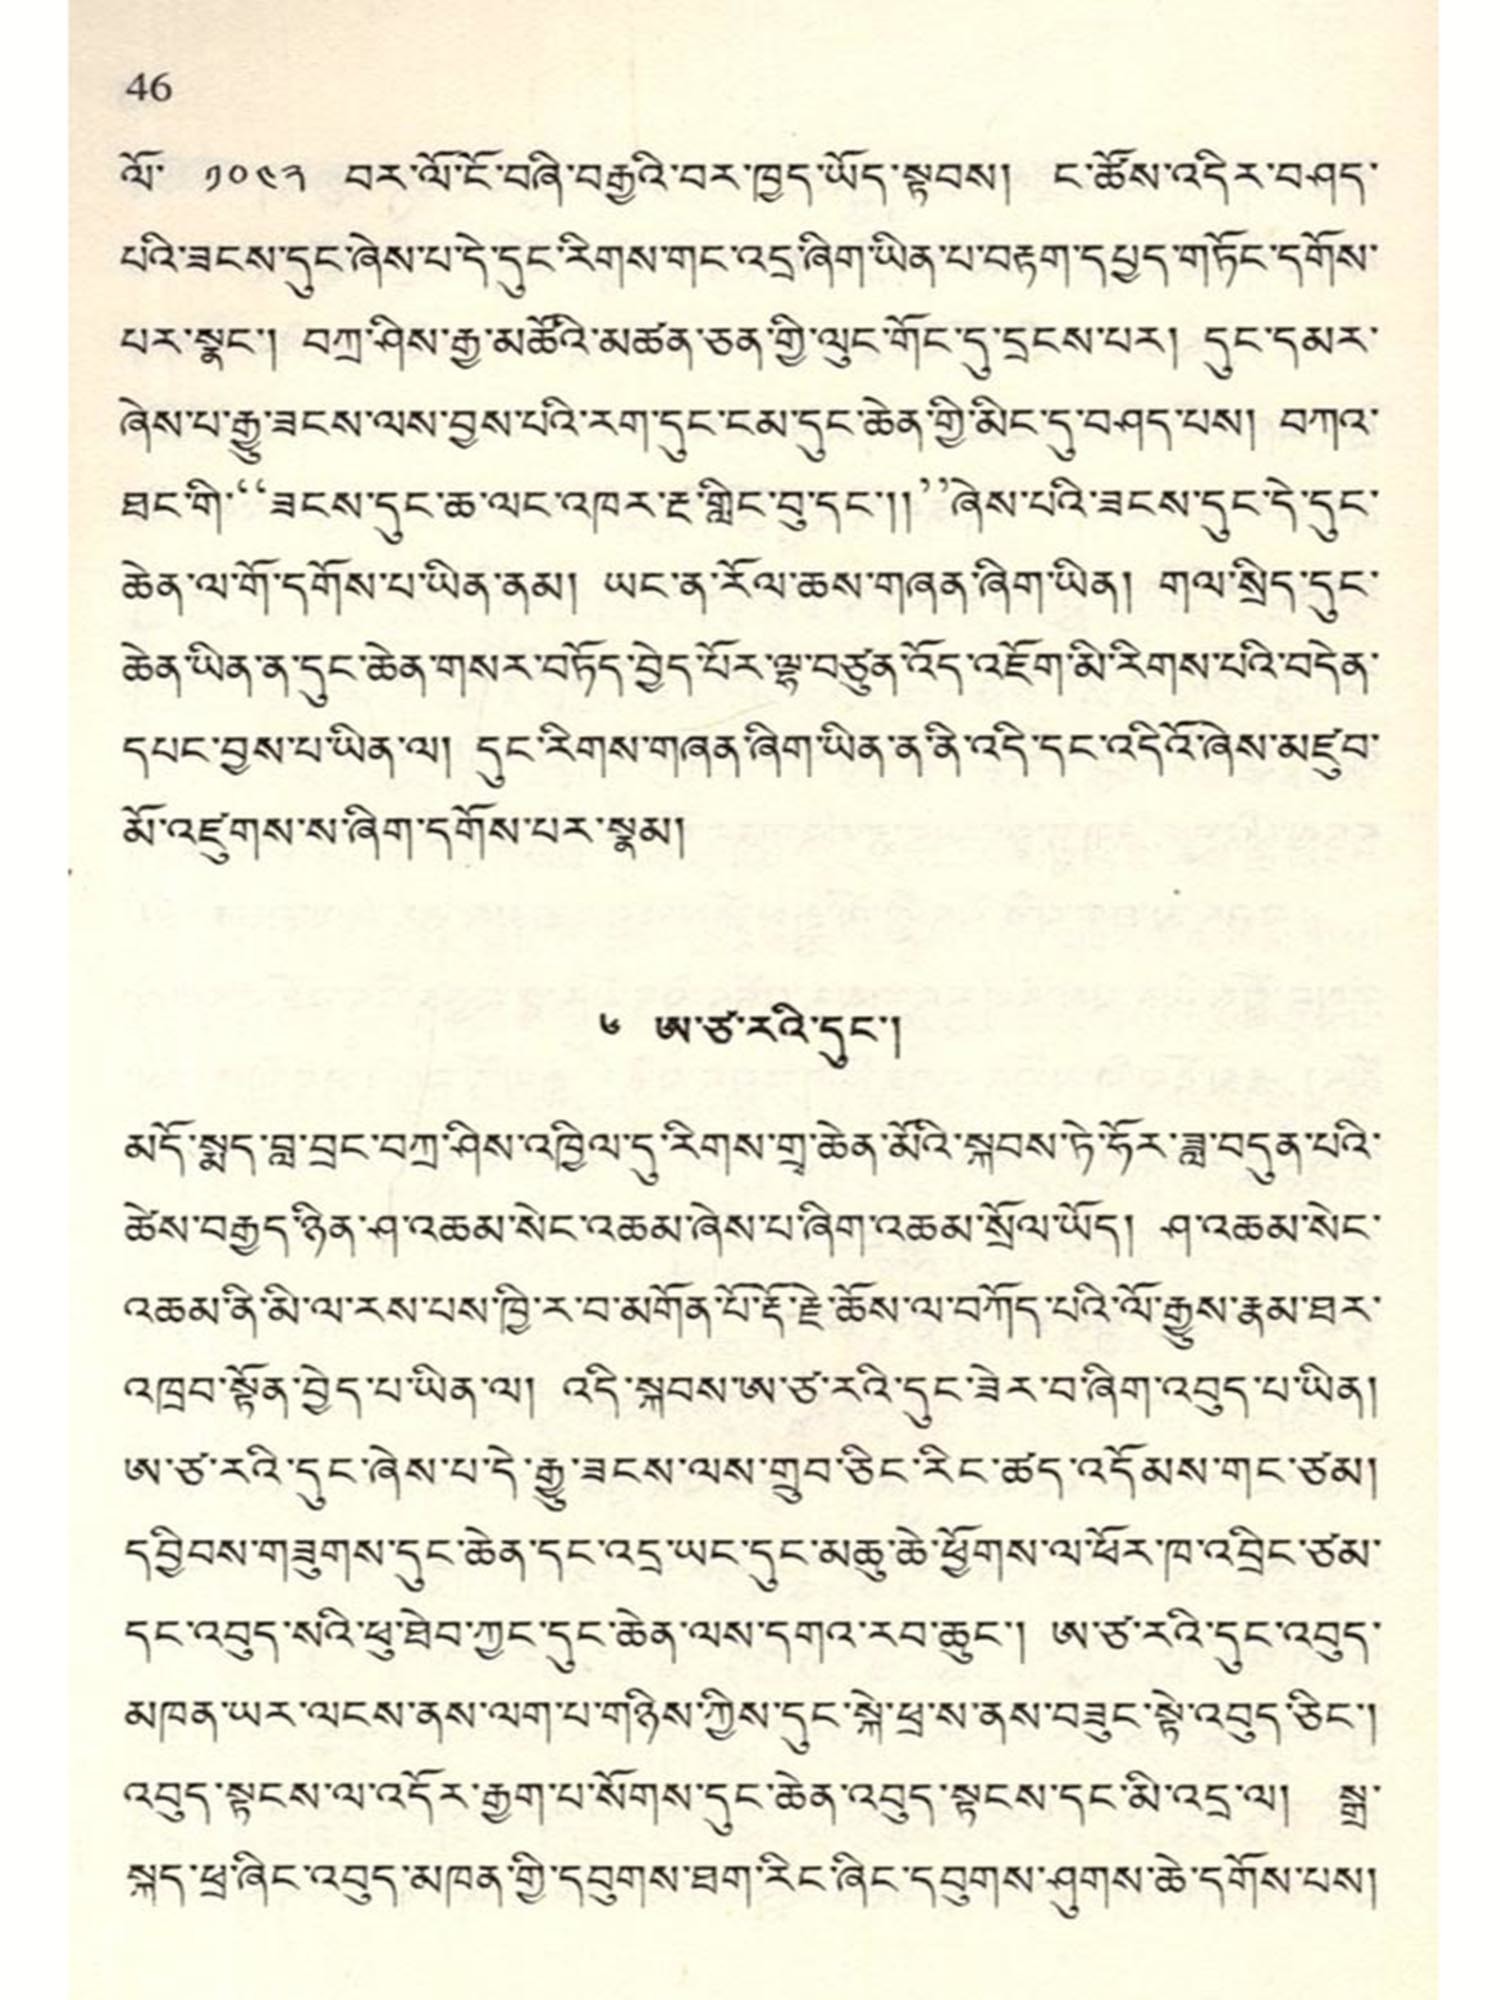 46
ལོ་ ༡༠༤༢ བར་ལོ་ངོ་བཞི་བརྒྱའི་བར་ཁྱད་ཡོད་སྟབས། ང་ཚོས་འདིར་བཤད་
པའི་ཟངས་དུང་ཞེས་པ་དེ་དུང་རིགས་གང་འདྲ་ཞིག་ཡིན་པ་བརྟག་དཔྱད་གཏོང་དགོས་
པར་སྣང་། བཀྲ་ཤིས་རྒྱ་མཚོའི་མཚན་ཅན་གྱི་ལུང་གོང་དུ་དྲངས་པར། དུང་དམར་
ཞེས་པ་རྒྱུ་ཟངས་ལས་བྱས་པའི་རག་དུང་ངམ་དུང་ཆེན་གྱི་མིང་དུ་བཤད་པས། བཀའ་
ཐང་གི་“ཟངས་དུང་ཆ་ལང་འཁར་རྔ་གླིང་བུ་དང་།།”ཞེས་པའི་ཟངས་དུང་དེ་དུང་
ཆེན་ལ་གོ་དགོས་པ་ཡིན་ནམ། ཡང་ན་རོལ་ཆས་གཞན་ཞིག་ཡིན། གལ་སྲིད་དུང་
ཆེན་ཡིན་ན་དུང་ཆེན་གསར་བཏོད་བྱེད་པོར་ལྷ་བཙུན་འོད་འཇོག་མི་རིགས་པའི་བདེན་
དཔང་བྱས་པ་ཡིན་ལ། དུང་རིགས་གཞན་ཞིག་ཡིན་ན་ནི་འདི་དང་འདིའོ་ཞེས་མཛུབ་
མོ་འཛུགས་ས་ཞིག་དགོས་པར་སྙམ།
༦ ཨ་ཙ་རའི་དུང་།
མདོ་སྨད་བླ་བྲང་བཀྲ་ཤིས་འཁྱིལ་དུ་རིགས་གྲྭ་ཆེན་མོའི་སྐབས་ཏེ་ཧོར་ཟླ་བདུན་པའི་
ཚེས་བརྒྱད་ཉིན་ཤ་འཆམ་སེང་འཆམ་ཞེས་པ་ཞིག་འཆམ་སྲོལ་ཡོད། ཤ་འཆམ་སེང་
འཆམ་ནི་མི་ལ་རས་པས་ཁྱི་ར་བ་མགོན་པོ་རྡོ་རྗེ་ཆོས་ལ་བཀོད་པའི་ལོ་རྒྱུས་རྣམ་ཐར་
འཁྲབ་སྟོན་བྱེད་པ་ཡིན་ལ། འདི་སྐབས་ཨ་ཙ་རའི་དུང་ཟེར་བ་ཞིག་འབུད་པ་ཡིན།
ཨ་ཙ་རའི་དུང་ཞེས་པ་དེ་རྒྱུ་ཟངས་ལས་གྲུབ་ཅིང་རིང་ཚད་འདོམས་གང་ཙམ།
དབྱིབས་གཟུགས་དུང་ཆེན་དང་འདྲ་ཡང་དུང་མཆུ་ཆེ་ཕྱོགས་ལ་ཕོར་ཁ་འབྲིང་ཙམ་
དང་འབུད་སའི་ཕུ་ཐེབ་ཀྱང་དུང་ཆེན་ལས་དགའ་རབ་ཆུང་། ཨ་ཙ་རའི་དུང་འབུད་
མཁན་ཡར་ལངས་ནས་ལག་པ་གཉིས་ཀྱིས་དུང་སྐེ་ཕྲ་ས་ནས་བཟུང་སྟེ་འབུད་ཅིང་།
འབུད་སྟངས་ལ་འདོར་རྒྱག་པ་སོགས་དུང་ཆེན་འབུད་སྟངས་དང་མི་འདྲ་ལ། སྒྲ་
སྐད་ཕྲ་ཞིང་འབུད་མཁན་གྱི་དབུགས་ཐག་རིང་ཞིང་དབུགས་ཤུགས་ཆེ་དགོས་པས།